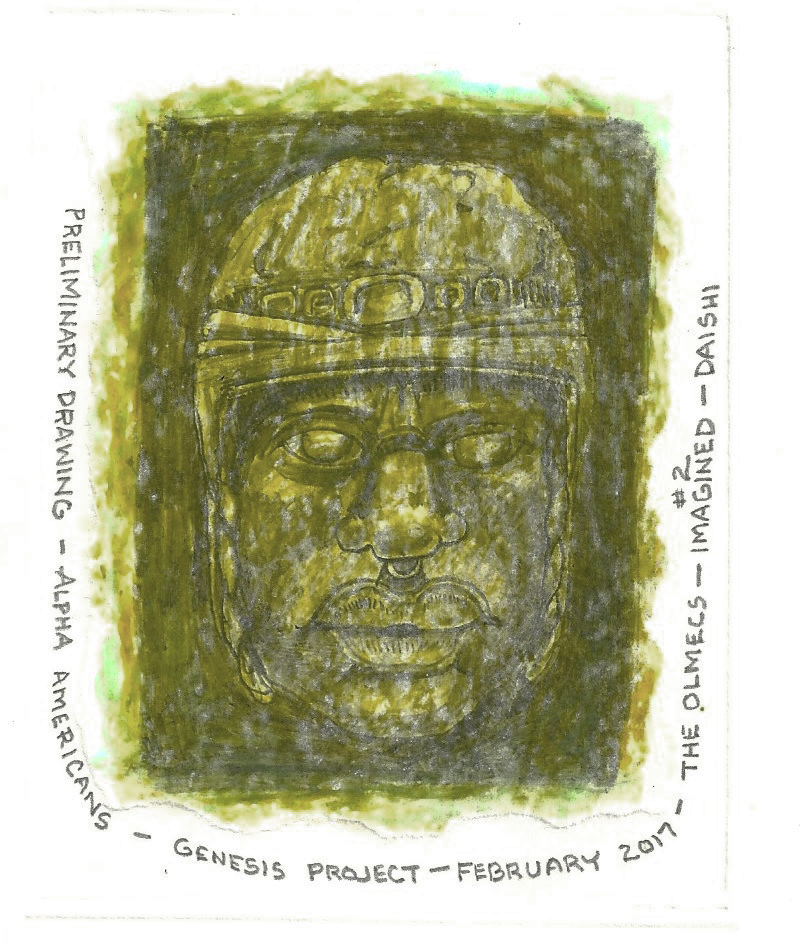 PRELIMINARY DRAWING - ALPHA AMERICANS - GENESIS PROJECT - FEBRUARY 2017 - THE OLMECS - IMAGINED - DAISHI
#2